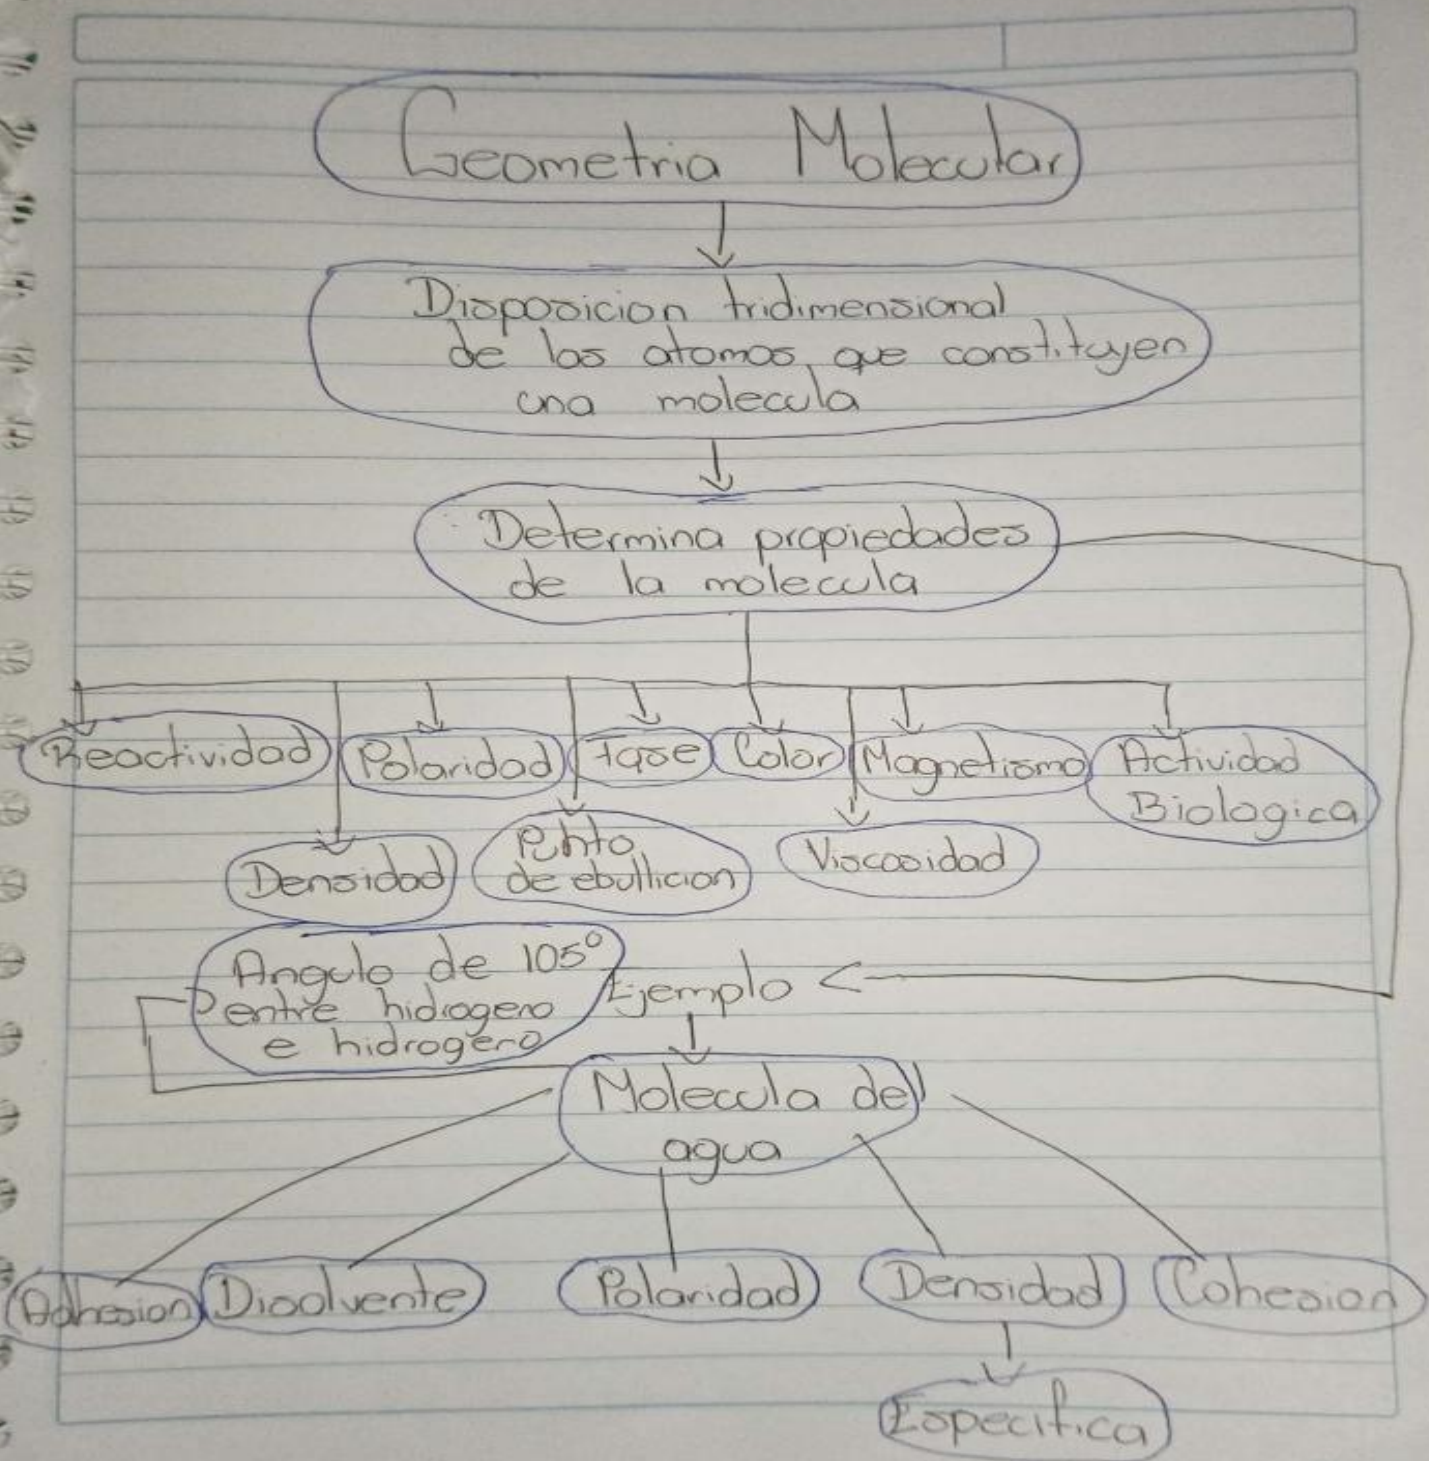 Geometria Molecular
Disposicion tridimensional
de los atomos, que constituyen
una molecula
Determina propiedades
de la molecula
Reactividad
Polaridad
Fase
Color
Magnetismo
Actividad
Biologica
Densidad
Punto
de ebullicion
Viscosidad
Angulo de 105°
entre hidrogeno
e hidrogeno
Ejemplo
Molecula del
agua
Adhesion
Disolvente
Polaridad
Densidad
Cohesion
Especifica